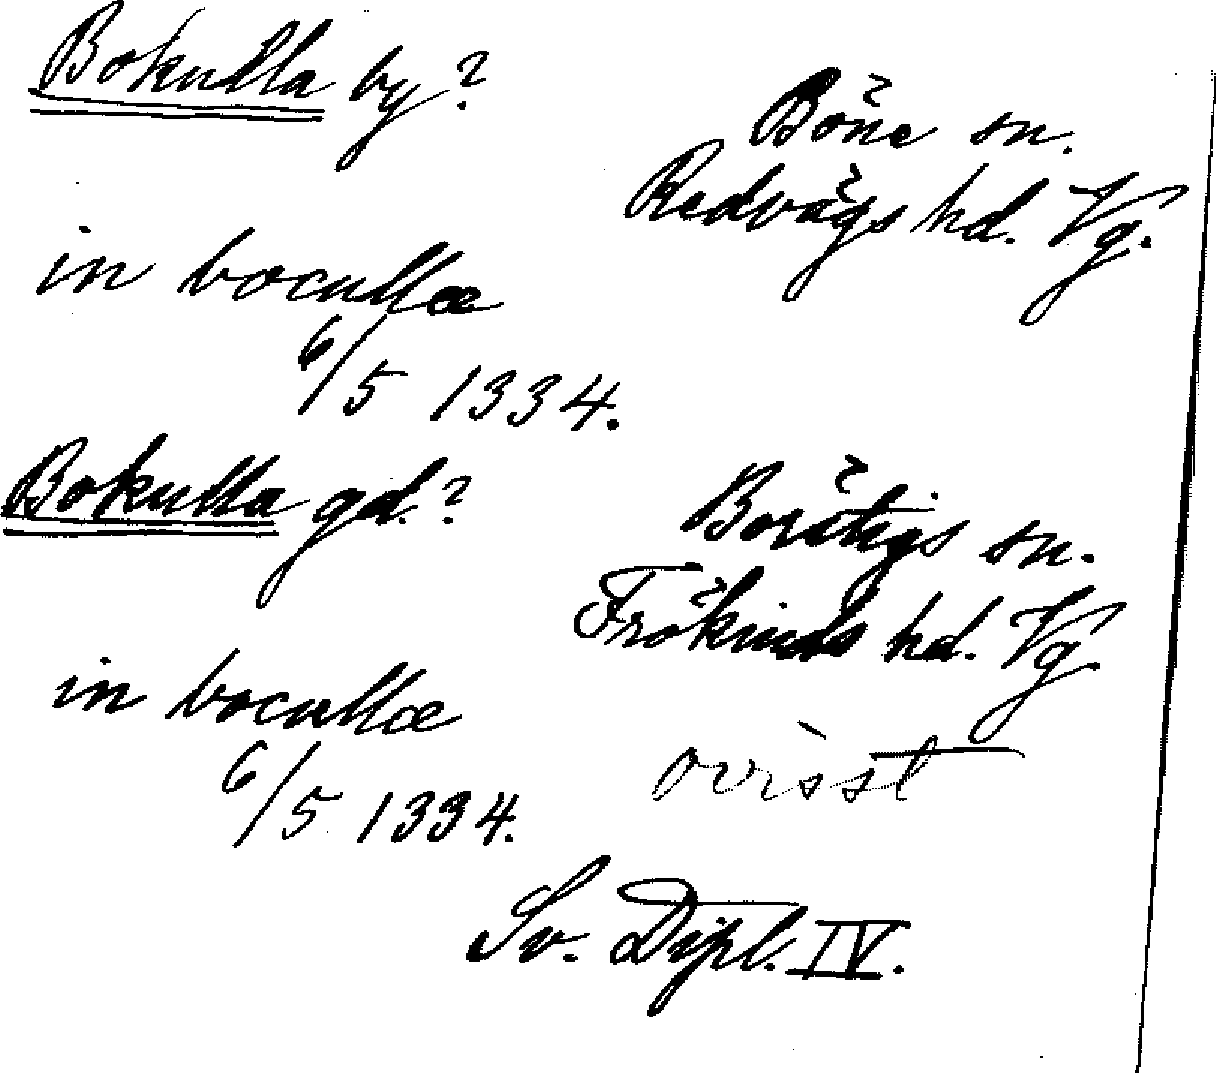 Bokulla by?
Böne sn.
Redvägs hd. Vg.
in bocullæ
6/5 1334.
Bokulla gd.?
Borstigs sn.
Frökinds hd. Vg.
in bocullæ
6/5 1334.
ovisst
Sv. Dipl. IV.